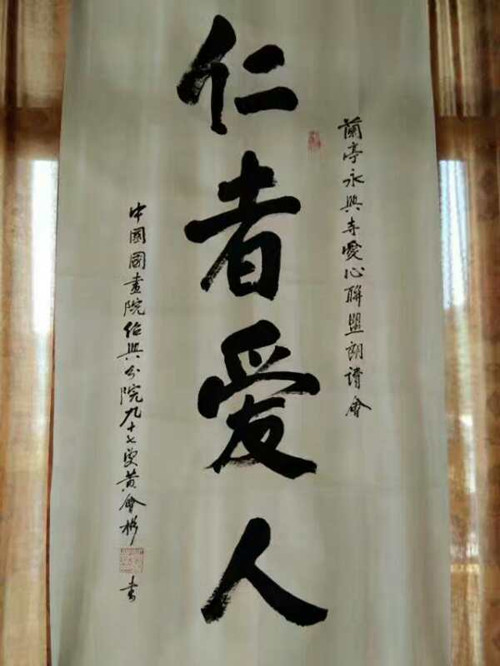 蘭亭永興寺愛心聯盟朗讀會
仁者爱人
中國國畫院绍興分院九十七叟黄會彬書